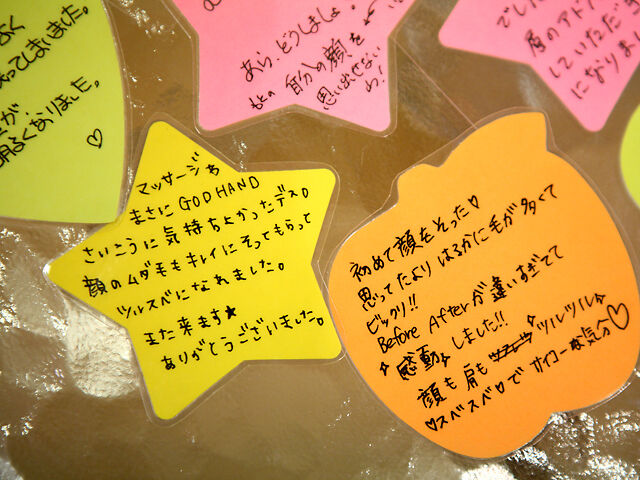 なってしまいました。
くなりました。
あら、どうしましょ。
もとの自分の顔を
思い出せない
わ!
でした
肩のアド
していただき
になりま
マッサージも
まさにGODHAND
さいこうに気持ちよかったデス。
顔のムダ毛もキレイにそってもらって
ツルスベになれました。
また来ます★
ありがとうございました。
初めて顔をそった♡
思ってたより はるかに毛が多くて
ビックリ!!
Before Afterが違いすぎてて
感動 しました!!
顔も肩も ツルツル☆
♡スベスベ♡で サイコーな気分♡